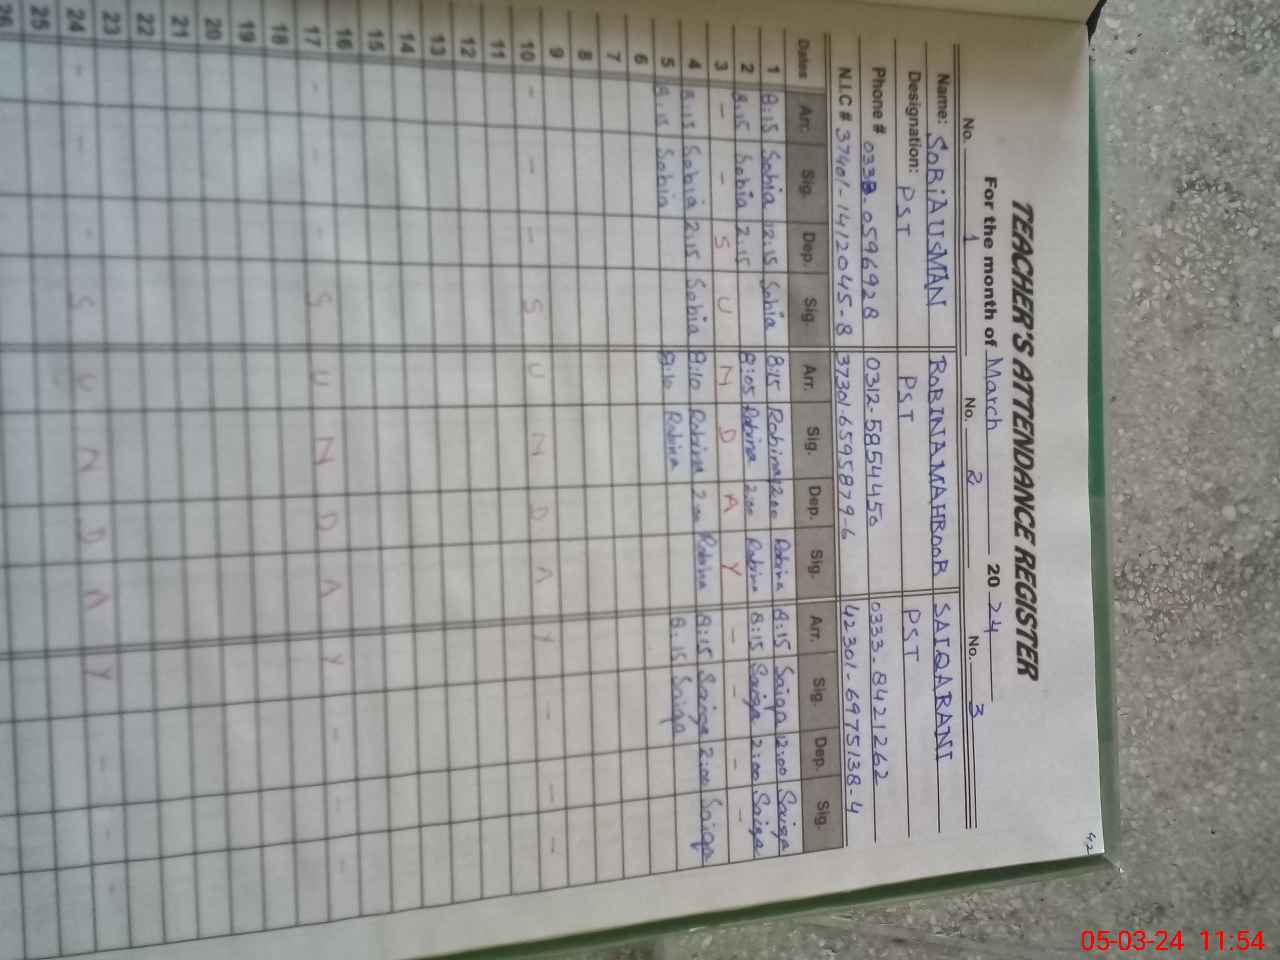 42
TEACHER'S ATTENDANCE REGISTER
For the month of March 20 24
No. 1 No. 2 No. 3
Name: SOBIA USMAN ROBINA MAHROOR SAIQA RANI
Designation: PST PST PST
Phone # 0332-0596928 0312-5854450 0333-8421262
N.I.C # 37401-1412045-8 37301-6595879-6 42301-6975138-4
Dates Arr. Sig. Dep. Sig Arr. Sig. Dep. Sig. Arr. Sig. Dep. Sig.
1 8:15 Sobia 12:15 Sobia 8:15 Robina 12:00 Robina 8:15 Saiqa 12:00 Saiqa
2 8:15 Sobia 2:15 8:05 Robina 2:00 Robina 8:15 Saiqa 2:00 Saiqa
3 - - S U N D A Y - - - -
4 8:15 Sobia 2:15 Sobia 8:10 Robina 2:00 Robina 8:15 Saiqa 2:00 Saiqa
5 8:15 Sobia 8:10 Robina 8:15 Saiqa
6
7
8
9
10 - - - S U N D A Y - - -
11
12
13
14
15
16
17 - - S U N D A Y - - -
18
19
20
21
22
23
24 - - S U N D A Y - - -
25
26
05-03-24 11:54